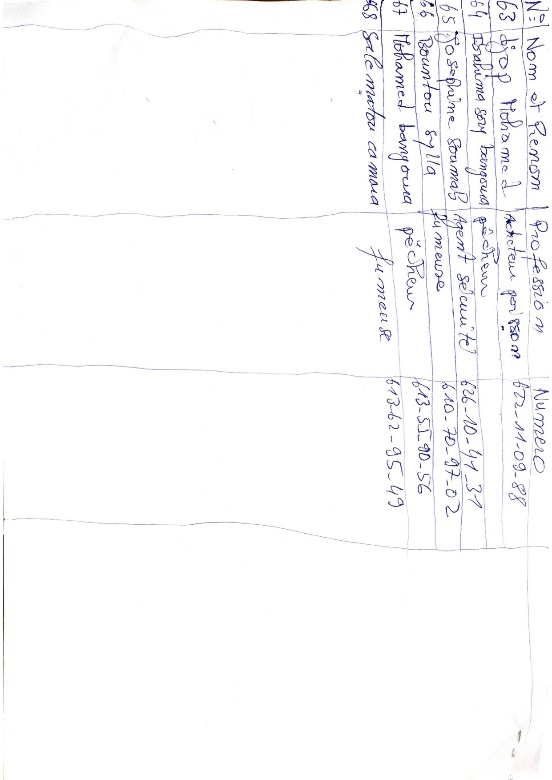 N= Nom et Prenom Profession Numero
63 diop Mohamed Acheteur poisson 622-11-09-88
64 Ibrahima sory bangoura pêcheur 626-10-41-31
65 Josephine Soumah Agent sécurité 610-70-97-02
66 Bountou sylla fumeuse 613-55-90-56
67 Mohamed bangoura pêcheur 613-62-95-49
68 Salematou camara fumeuse